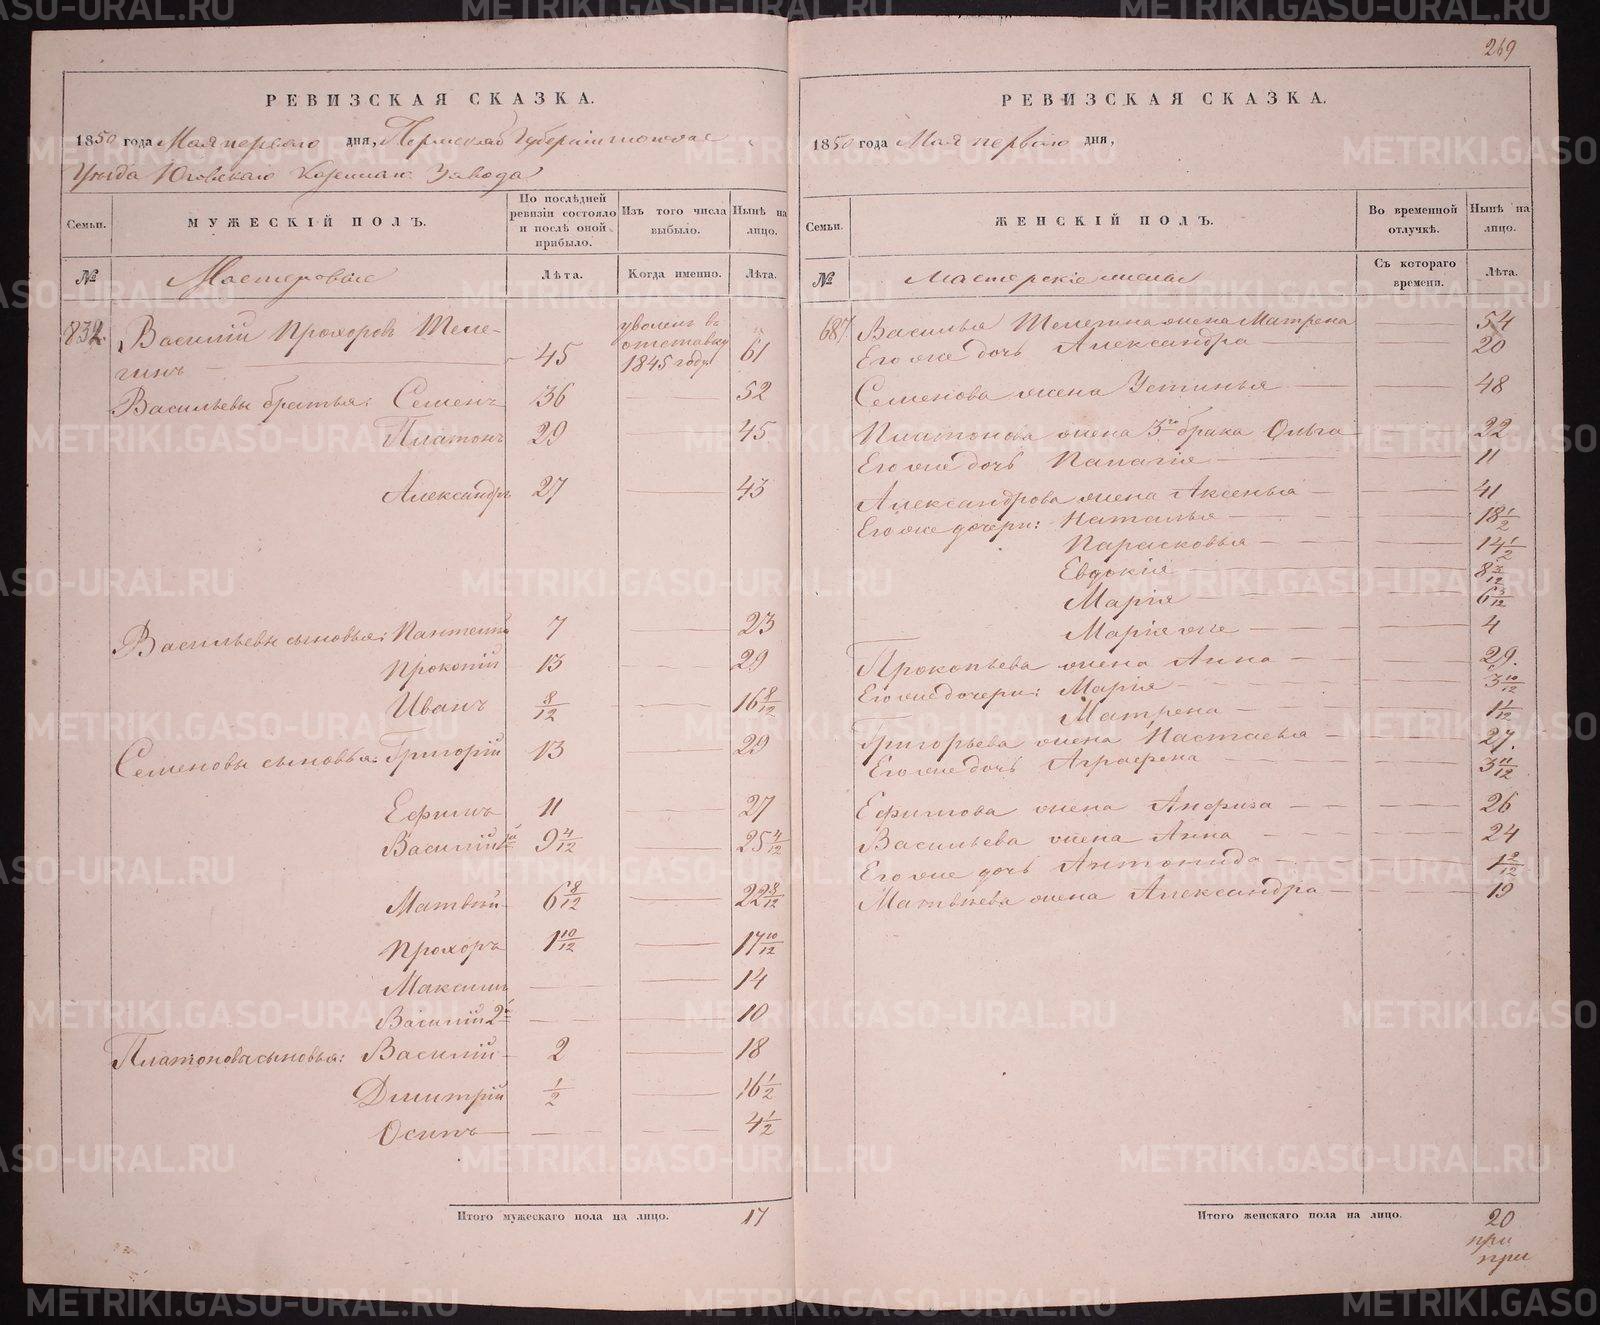 269
РЕВИЗСКАЯ СКАЗКА.
1850 года Мая перваго дня, Пермской Губерніи
Уѣзда Юговскаго Казеннаго Завода
Семьи.
МУЖЕСКІЙ ПОЛЪ.
По послѣдней ревизіи состояло и послѣ оной прибыло.
Изъ того числа выбыло.
Нынѣ на лицо.
№
Мастеровые
Лѣта.
Когда именно.
Лѣта.
832. Василій Прохоровъ Теле-
гинъ 45 уволенъ въ отставку 1845 году 61
Васильевы братья: Семенъ 36 52
Платонъ 29 45
Александръ 27 43
Васильевы сыновья: 7 23
Прокопій 13 29
Иванъ 8/12 16 8/12
Семеновы сыновья: Григорій 13 29
Ефимъ 11 27
Василій 1й 9 4/12 25 4/12
Матвѣй 6 8/12 22 8/12
Прохоръ 1 10/12 17 10/12
Максимъ 14
Василій 2й 10
Платоновы сыновья: Василій 2 18
Дмитрій 1/2 16 1/2
Осипъ 4 1/2
Итого мужескаго пола на лицо. 17
РЕВИЗСКАЯ СКАЗКА.
1850 года Мая перваго дня,
Семьи.
ЖЕНСКІЙ ПОЛЪ.
Во временной отлучкѣ.
Нынѣ на лицо.
№
Мастерскіе жены
Съ котораго времени.
Лѣта.
687. Василья Телегина жена Матрена 54
Его же дочь Александра 20
Семенова жена Устинья 48
Платонова жена 3го брака Ольга 22
Его же дочь Палагія 11
Александрова жена Аксенья 41
Его же дочери: Наталья 18 1/2
Парасковья 14 1/2
Евдокія 8 3/12
Марія 6 3/12
Марія же 4
Прокопьева жена Анна 29.
Его же дочери: Марія 3 10/12
Матрена 1 1/12
Григорьева жена Настасья 27.
Его же дочь Аграфена 3 11/12
Ефимова жена Анфиза 26
Васильева жена Анна 24
Его же дочь Антонида 1 2/12
Матвѣева жена Александра 19
Итого женскаго пола на лицо. 20
при
при
METRIKI.GASO-URAL.RU